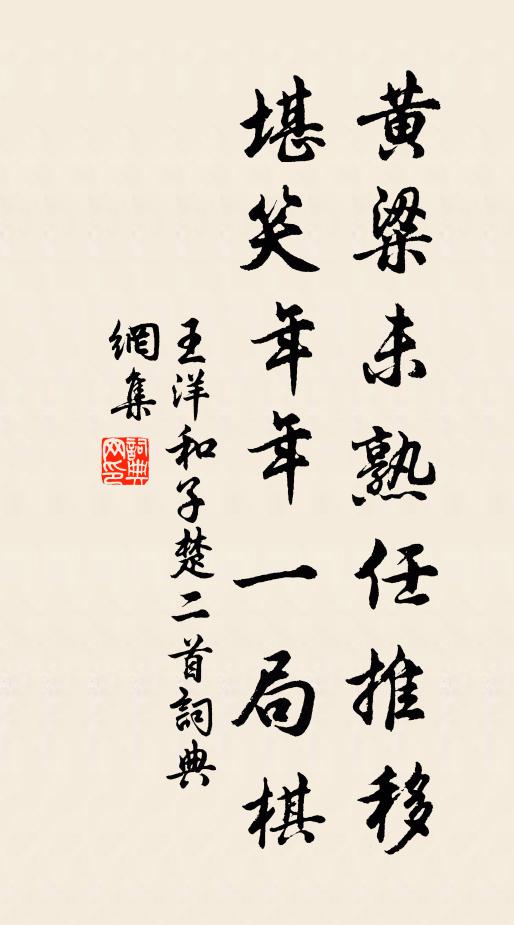 黄粱未熟任推移
堪笑年年一局棋
王洋和子楚二首詞典
網集
詞典
网印